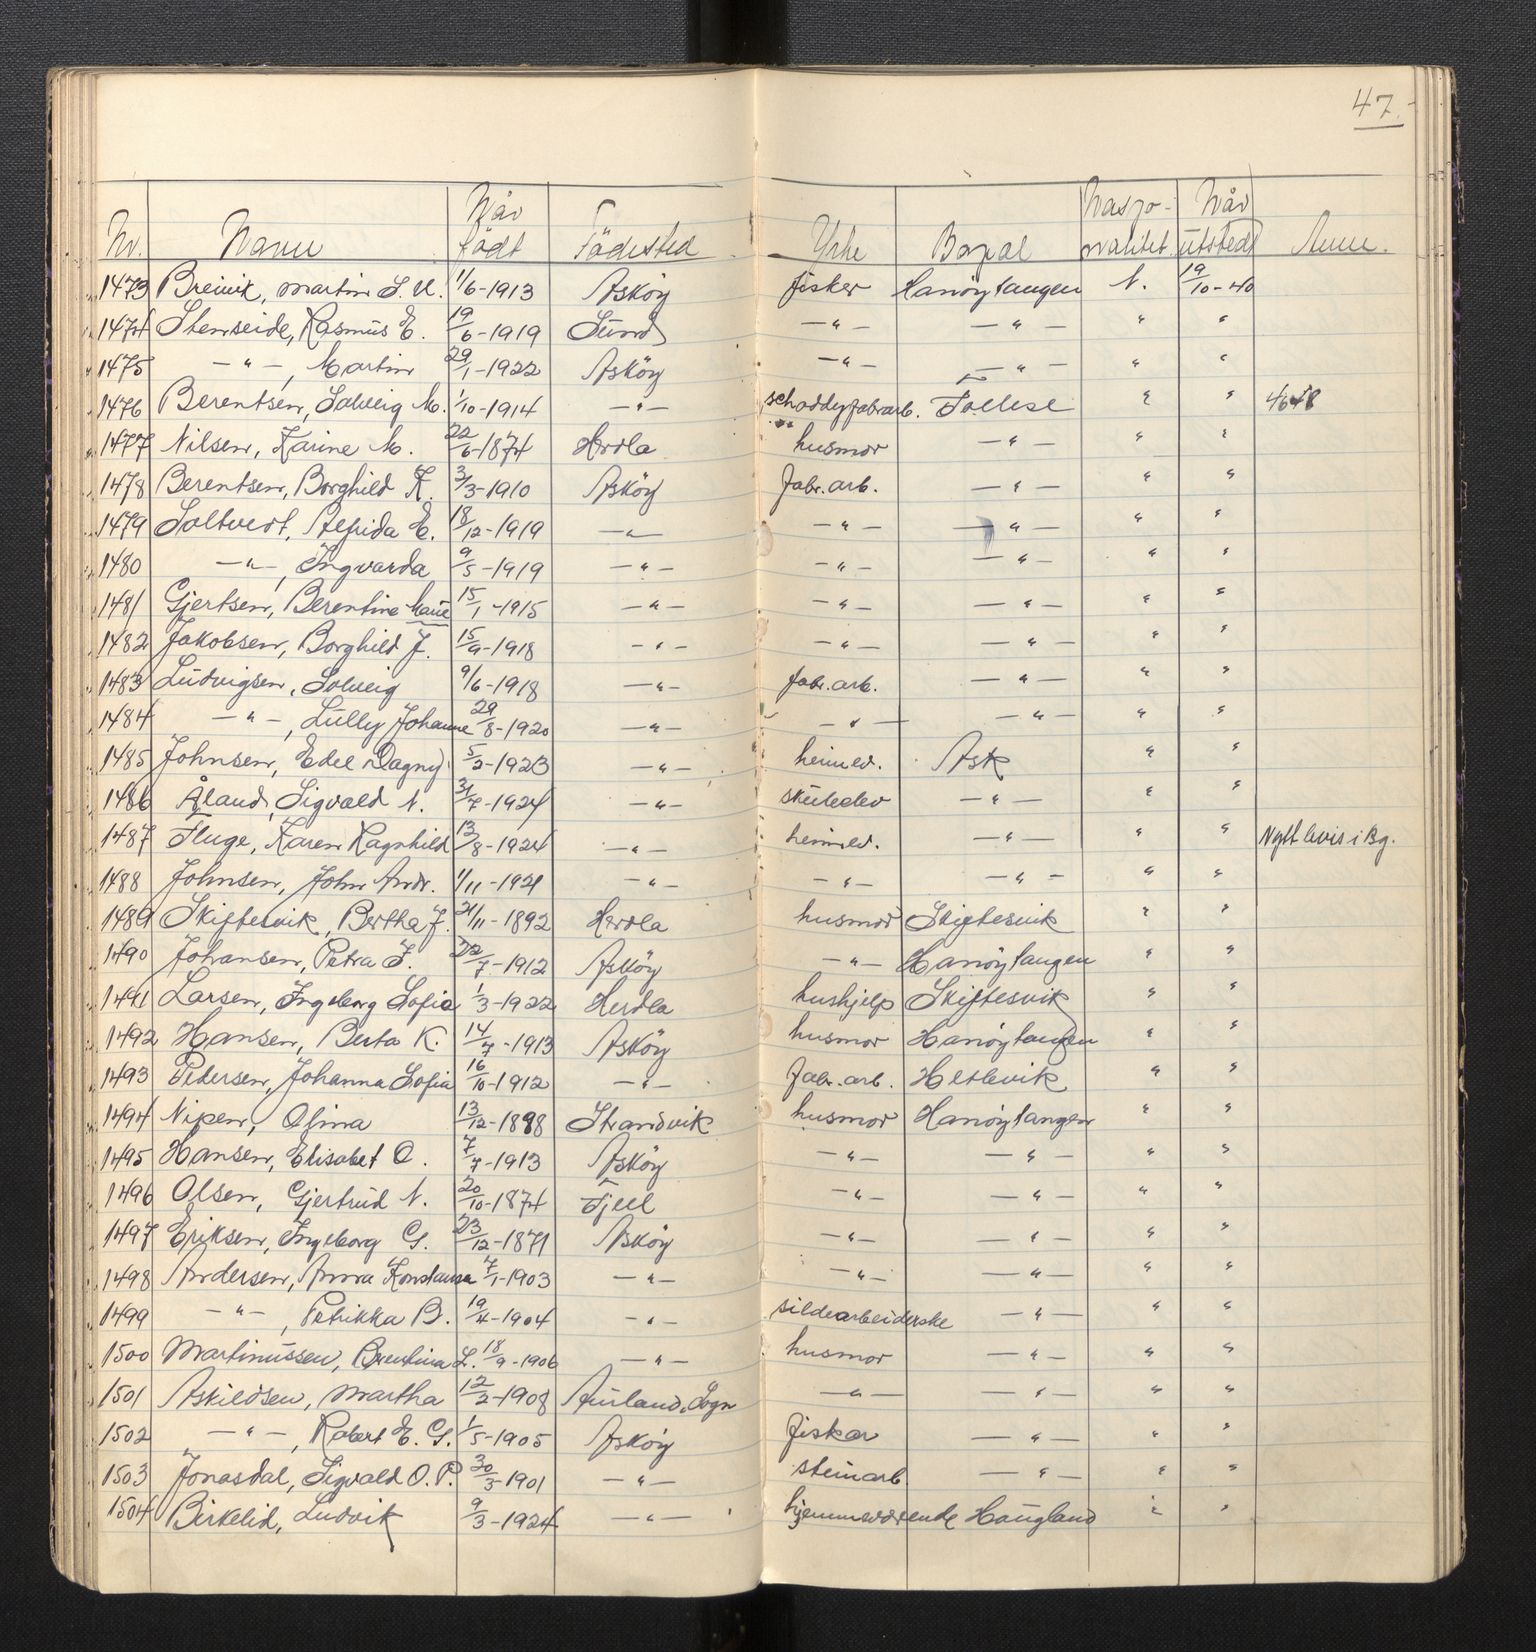 47.
Nr. Navn Når födt Födested Yrke Bopæl Naszonalitet Når utstedt Anm.
1473 Breivik, Martin S. N. 1/6-1913 Asköy fisker Hanöytangen N. 19/10-40
1474 Stenseide, Rasmus E. 19/6-1919 Sund —"— —"— " "
1475 —"—, Martin 29/1-1922 Asköy —"— —"— " "
1476 Berentsen, Solveig M. 1/10-1914 —"— schoddyfabrarb. Follese " "
1477 Nilsen, Karine M. 22/6-1874 Herdla husmor —"— " "
1478 Berentsen, Borghild K. 3/3-1910 Asköy fabr.arb. —"— " "
1479 Soltvedt, Alfrida E. 18/12-1919 —"— —"— —"— " "
1480 —"—, Ingvarda 9/5-1919 —"— —"— —"— " "
1481 Gjertsen, Berentine Marie 15/1-1915 —"— —"— —"— " "
1482 Jakobsen, Borghild J. 15/9-1918 —"— —"— —"— " "
1483 Ludvigsen, Solveig 9/6-1918 —"— fabr.arb. —"— " "
1484 —"—, Lully Johanne 29/8-1920 —"— —"— —"— " "
1485 Johnsen, Edel Dagny 5/2-1923 —"— heimev. Ask " "
1486 Åland, Sigvald N. 31/7-1924 —"— skuleelev —"— " "
1487 Fluge, Karen Ragnhild 13/8-1924 —"— heimev. —"— " " Nytt bevis i Bg.
1488 Johnsen, John Andr. 1/11-1921 —"— —"— —"— " "
1489 Skiftesvik, Bertha J. 21/11-1892 Herdla husmor Skiftesvik " "
1490 Johansen, Petra J. 22/7-1912 Asköy —"— Hanöytangen " "
1491 Larsen, Ingeborg Sofie 1/3-1922 Herdla hushjelp Skiftesvik " "
1492 Hansen, Berta K. 14/7-1913 Asköy husmor Hanöytangen " "
1493 Pedersen, Johanna Sofia 16/10-1912 —"— fabr.arb. Hetlevik " "
1494 Nipen, Olina 13/12-1898 Strandvik husmor Hanöytangen " "
1495 Hansen, Elisabet O. 7/7-1913 Asköy —"— —"— " "
1496 Olsen, Gjertrud N. 20/10-1874 Fjell —"— —"— " "
1497 Eriksen, Ingeborg G. 23/12-1871 Asköy —"— —"— " "
1498 Andersen, Anna Konstanse 7/1-1903 —"— —"— —"— " "
1499 —"—, Petrikka B. 19/4-1904 —"— sildearbeiderske —"— " "
1500 Martinussen, Brentina L. 18/9-1906 —"— husmor —"— " "
1501 Askildsen, Martha 12/2-1908 Aurland, Sogn —"— —"— " "
1502 —"—, Robert E. G. 1/5-1905 Asköy fiskar —"— " "
1503 Jonasdal, Sigvald O. P. 30/3-1901 —"— steinarb —"— " "
1504 Birkelid, Ludvik 9/3-1924 —"— hjemmeværende Haugland " "